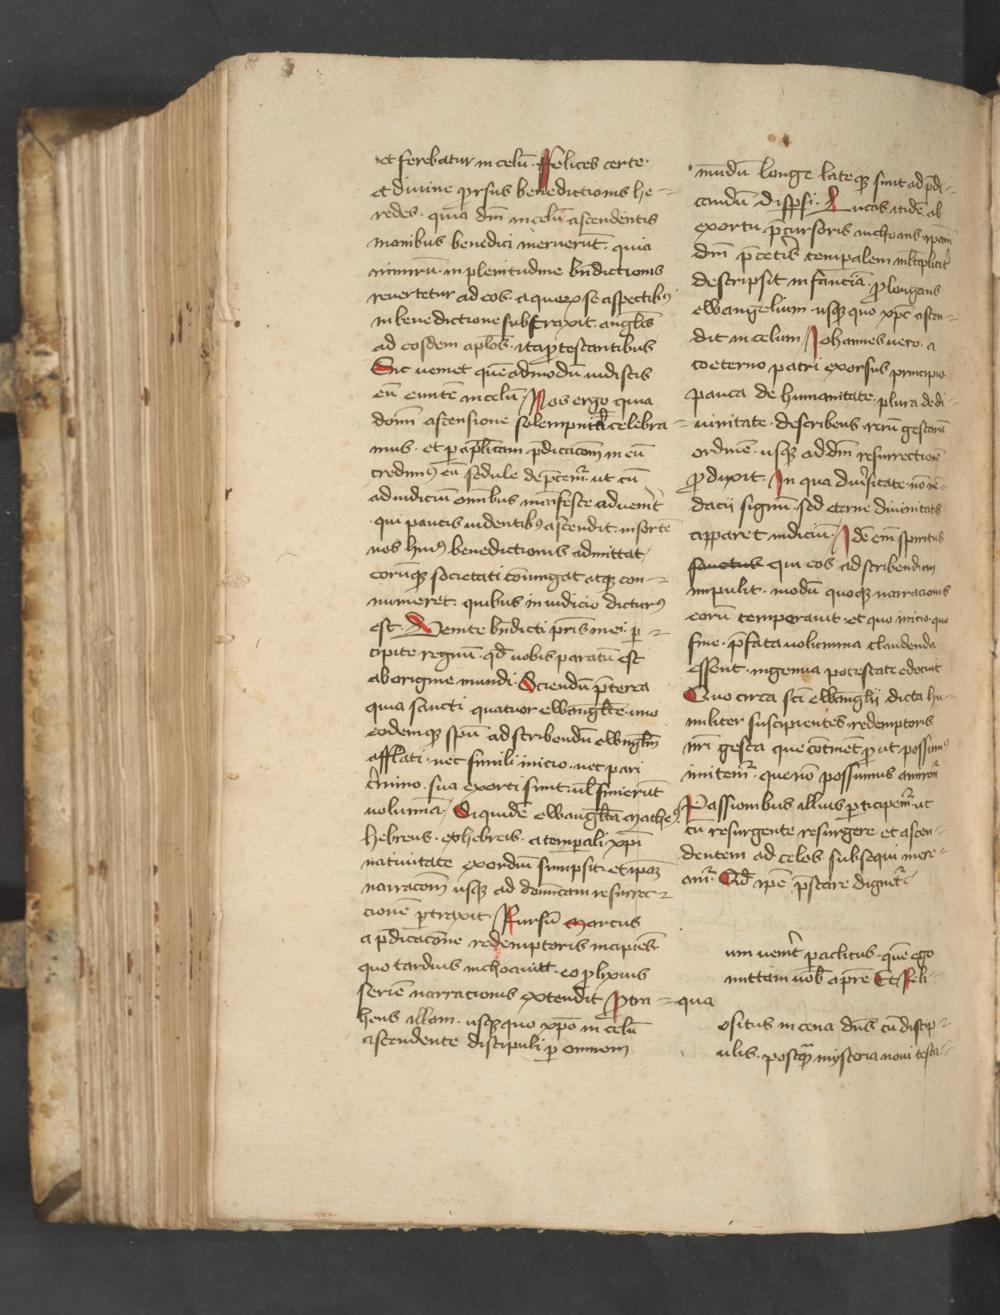 et ferebatur in celū · ffelices certe ·
et diuine prsus benedictionis he =
redes · quia dm̄ in celū ascendentis
manibus benedici meruerūt · quia
nimirū in plenitudine bn̄dictionis
reuertetur ad eos · a quorꝫ se aspectibꝰ
in benedictione subtraxit · angl̄is
ad eosdem apl̄os · ita ꝓtestantibus
Sic ueniet quēadmodū uidistis
eū euntē in celū · Nos ergo quia
domī ascensione solempnit̄ celebra =
mus · et per apl̄icam p̄dicacōm in eū
credimꝰ eū sedule dep̄cem̄ · ut cū
ad iudiciū om̄ibus manifeste aduenīt
· qui paucis uidentibꝰ ascendit · in sorte
nos huiꝰ benedictionis admittat /
eorūqꝫ societati coniungat atqꝫ con =
numeret · quibus in iudicio dicturꝰ
est · Uenite bn̄dicti pr̄is mei · per =
cipite regnū · qd̄ uobis paratū est
ab origine mundi · Sciendū p̄terea
quia sancti quatuor ewangl̄iste · uno
eodemqꝫ spū ad scribendū ewngl̄m
afflati · nec simili inicio · nec pari
t̄mino · sua exorsi sunt · ul̄ finierūt
uolumīa / Siquidē ewangl̄ista Matheꝰ
hebreus · ex hebreis · a temp̄ali xp̄i
natiuitate exordiū sumpsit · et ip̄aꝫ
narracōm usqꝫ ad dominicam resurrec =
cionē pertraxit · Rursū Marcus
a p̄dicacōne redemptoris incipiēs
quo tardius inchoauit · eo ꝓlixius
seriē narracionis extendit Ptra =
hens illam · usqꝫ quo xp̄o in celū
ascendente discipuli per omnem
mundū longe lateqꝫ sunt ad p̄di =
candū disp̄si · Lucas itidē ab
exortu p̄cursoris inchoans ip̄am
dm̄ p̄ ceteris temporalem multiplicit̄
descripsit infanciā · ꝓlongans
ewangelium · usqꝫ quo xp̄c ascen =
dit in celum / Iohannes uero · a
coeterno patri exorsus principio
pauca de humanitate · plura de di =
uinitate · describens · rerū gestarū
ordinē · usqꝫ ad dm̄ resurrectionē
ꝓduxit · In qua diu̓sitate · nō mē =
dacii signū · sed eterne diuinitatis
apparet indiciū · / Idē em̄ spiritus
sanctus qui eos ad scribendum
impulit · modū quoqꝫ narracionis
eorū temperauit · et quo inicio · quo
fine · p̄fata uolumina claudenda
essent · ingenua potestate edocuit
Quo circa sc̄i ewangl̄ii dicta hu =
militer suscipientes · redemptoris
nr̄i gesta que cōtinēt ꝓ ut possumꝰ
imitem̄ · que nō possumus amirem̄
Passionibus illius perticipem̄ · ut
cū resurgente resurgere · et ascen =
dentem ad celos · subsequi mere =
am̄ · Qd̄ ip̄e p̄stare dignet̄
um uenīt paclitus · quē ego
mittam uob̄ a pr̄e Et Reli =
qua
ositus in cena dn̄s cū discip =
ulis · postqꝫ mysteria noui testa =